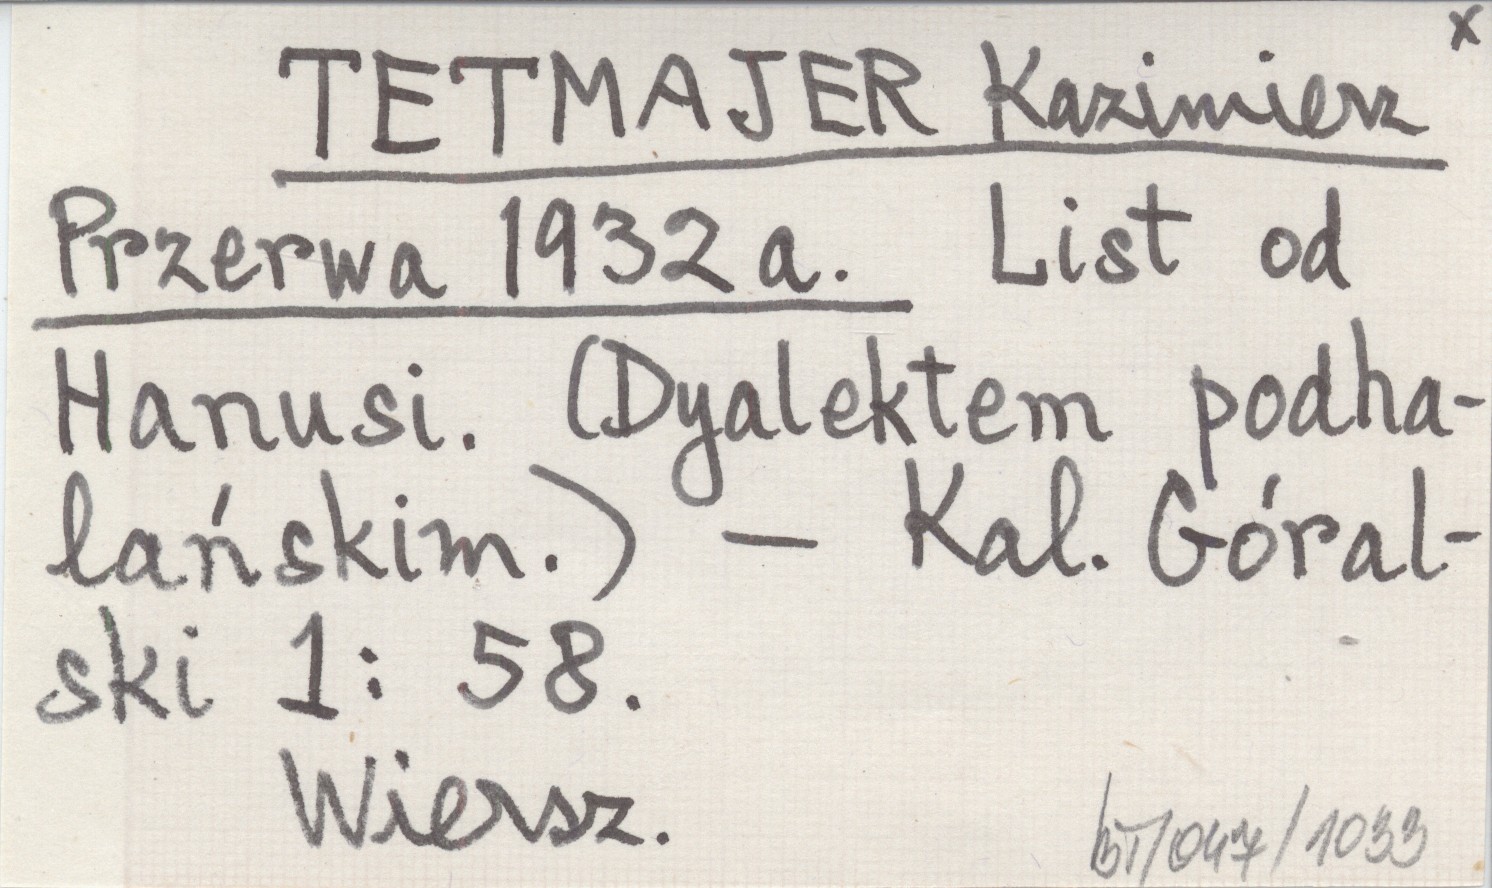 x
TETMAJER Kazimierz
Przerwa 1932 a. List od
Hanusi. (Dyalektem podha-
lańskim.) — Kal. Góral-
ski 1: 58.
Wiersz.
BT/047/1033